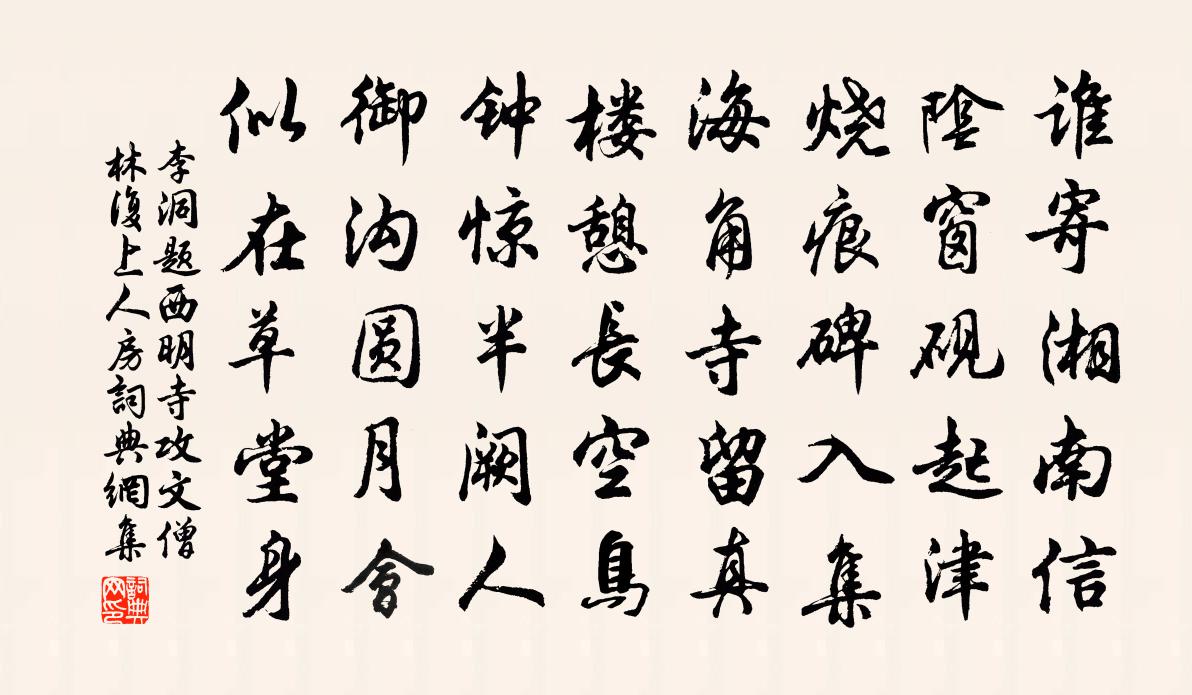 谁寄湘南信
陰窗砚起津
烧痕碑入集
海角寺留真
楼憩長空鳥
钟惊半阙人
御沟圆月會
似在草堂身
李洞题西明寺攻文僧
林復上人房詞典網集